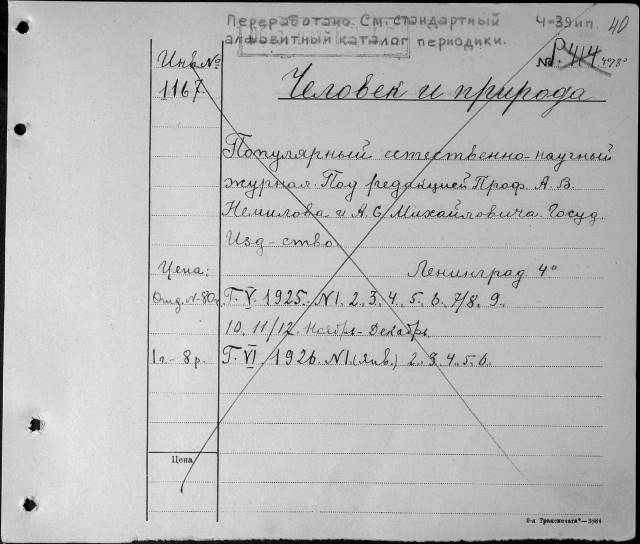 Переработано. См. стандартный
алфавитный каталог периодики.
Ч-39ип. 40
Инв№ 1167
№ Р.414
Человек и природа
Популярный естественно-научный
журнал. Под редакцией Проф. А. В.
Немилова и А. С. Михайловича. Госуд.
Изд-ство.
Цена:
Ленинград 4º
Отд. N-80к.
Г. V. 1925. N1. 2. 3. 4. 5. 6. 7/8. 9.
10. 11/12. Ноябрь-Декабрь.
1 г.- 8 р.
Г. VI. 1926. N1. (янв.) 2. 3. 4. 5. 6.
Цена